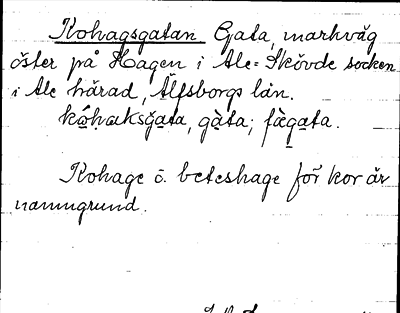 Kohagsgatan Gata, markväg
öster på Hagen i Ale-Skövde socken
i Ale härad, Älfsborgs län.
kóhaksgata, gàta; fægata.
Kohage ö. beteshage för kor är
namngrund.